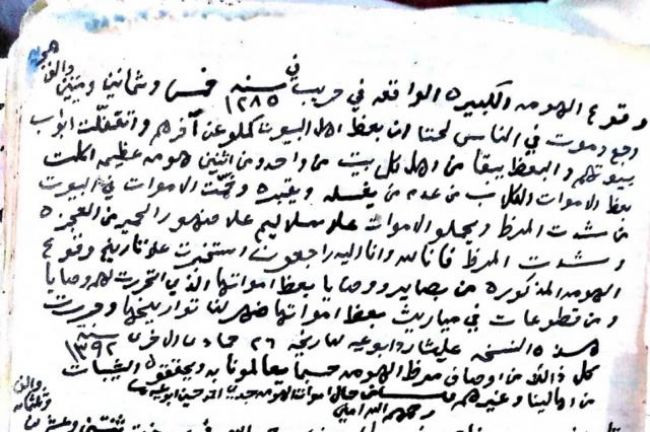 وقوع الهومه الكبيره الواقعه في حريب في سنه ١٢٨٥ خمس وثمانين وميتين والف هجريه
وجع وموت في الناس لحتا ان بعظ اهل البيوت كملو عن آخرهم واتقفلت ابواب
بيوتهم والبعظ يبقا من اهل كل بيت من واحد ومن اثنين هومه عظيمه اكلت
بعظ الاموات الكلاب من عدم من يغسله ويقبره وتحت الاموات في البيوت
من شدت المرظ ويحملو الاموات علا سلاليم علا ضهور الحمير من العجزه
وشدت المرظ فانا لله وانا اليه راجعون استخرت علا تاريخ وقوع
الهومه المذكوره من بصاير ووصايا بعظ امواتها الذي اتحررت لهم وصايا
ومن تطوعات في مياريث بعظ امواتها ضهر لنا تواريخها وحررت
هذه النسخه علي لتاريخه ٢٦ جماد اول سنه ١٣٩٢
كل ذالك من اوصاف مرظ الهومه حسبما يعالمونا به ويحققون الشيبات
من اهالينا وغيرهم حال اموات الهومه جدي احمد حسين
رحمهم الله امين
والف